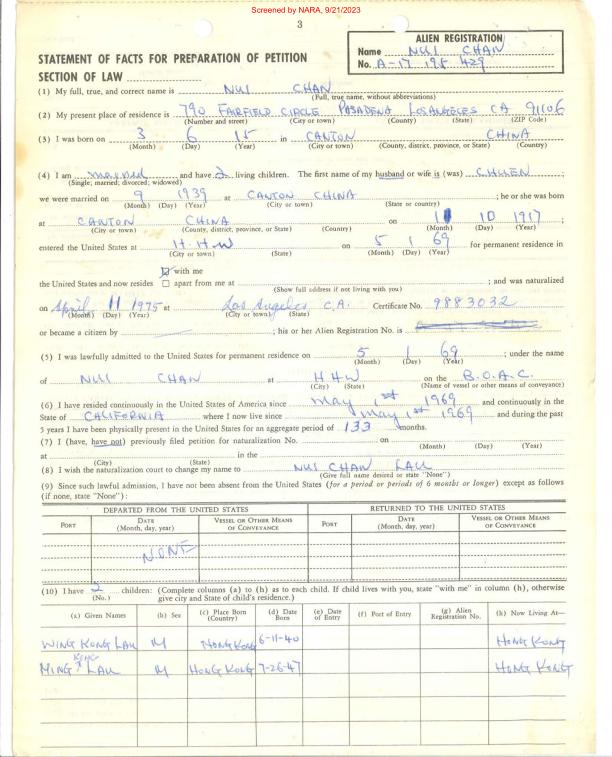 Screened by NARA, 9/21/2023
3
ALIEN REGISTRATION
Name NUI CHAN
No. A-17 195 429
STATEMENT OF FACTS FOR PREPARATION OF PETITION
SECTION OF LAW
(1) My full, true, and correct name is NUI CHAN
(Full, true name, without abbreviations)
(2) My present place of residence is 790 FAIRFIELD CIRCLE PASADENA LOS ANGELES CA 91106
(Number and street) (City or town) (County) (State) (ZIP Code)
(3) I was born on 3 6 15 in CANTON CHINA
(Month) (Day) (Year) (City or town) (County, district, province, or State) (Country)
(4) I am married and have 2 living children. The first name of my husband or wife is (was) CHUEN ;
(Single; married; divorced; widowed)
we were married on 9 1939 at CANTON CHINA ; he or she was born
(Month) (Day) (Year) (City or town) (State or country)
at CANTON CHINA on 1 10 1917 ;
(City or town) (County, district, province, or State) (Country) (Month) (Day) (Year)
entered the United States at H.H.W on 5 1 69 for permanent residence in
(City or town) (State) (Month) (Day) (Year)
with me
the United States and now resides apart from me at ; and was naturalized
(Show full address if not living with you)
on April 11 1975 at Los Angeles C.A. Certificate No. 9883032
(Month) (Day) (Year) (City or town) (State)
or became a citizen by ; his or her Alien Registration No. is
(5) I was lawfully admitted to the United States for permanent residence on 5 1 69 ; under the name
(Month) (Day) (Year)
of NUI CHAN at H H W on the B.O.A.C.
(City) (State) (Name of vessel or other means of conveyance)
(6) I have resided continuously in the United States of America since May 1st 1969 and continuously in the
State of CALIFORNIA where I now live since May 1st 1969 and during the past
5 years I have been physically present in the United States for an aggregate period of 133 months.
(7) I (have, have not) previously filed petition for naturalization No. on
(Month) (Day) (Year)
at in the
(City) (State)
(8) I wish the naturalization court to change my name to NUI CHAN LAU
(Give full name desired or state "None")
(9) Since such lawful admission, I have not been absent from the United States (for a period or periods of 6 months or longer) except as follows
(if none, state "None"):
DEPARTED FROM THE UNITED STATES RETURNED TO THE UNITED STATES
PORT DATE (Month, day, year) VESSEL OR OTHER MEANS OF CONVEYANCE PORT DATE (Month, day, year) VESSEL OR OTHER MEANS OF CONVEYANCE
NONE
(10) I have 2 children: (Complete columns (a) to (h) as to each child. If child lives with you, state "with me" in column (h), otherwise
(No.) give city and State of child's residence.)
(a) Given Names (b) Sex (c) Place Born (Country) (d) Date Born (e) Date of Entry (f) Port of Entry (g) Alien Registration No. (h) Now Living At—
WING KONG LAU M HONG KONG 6-11-40 HONG KONG
MING KONG LAU M HONG KONG 7-26-47 HONG KONG